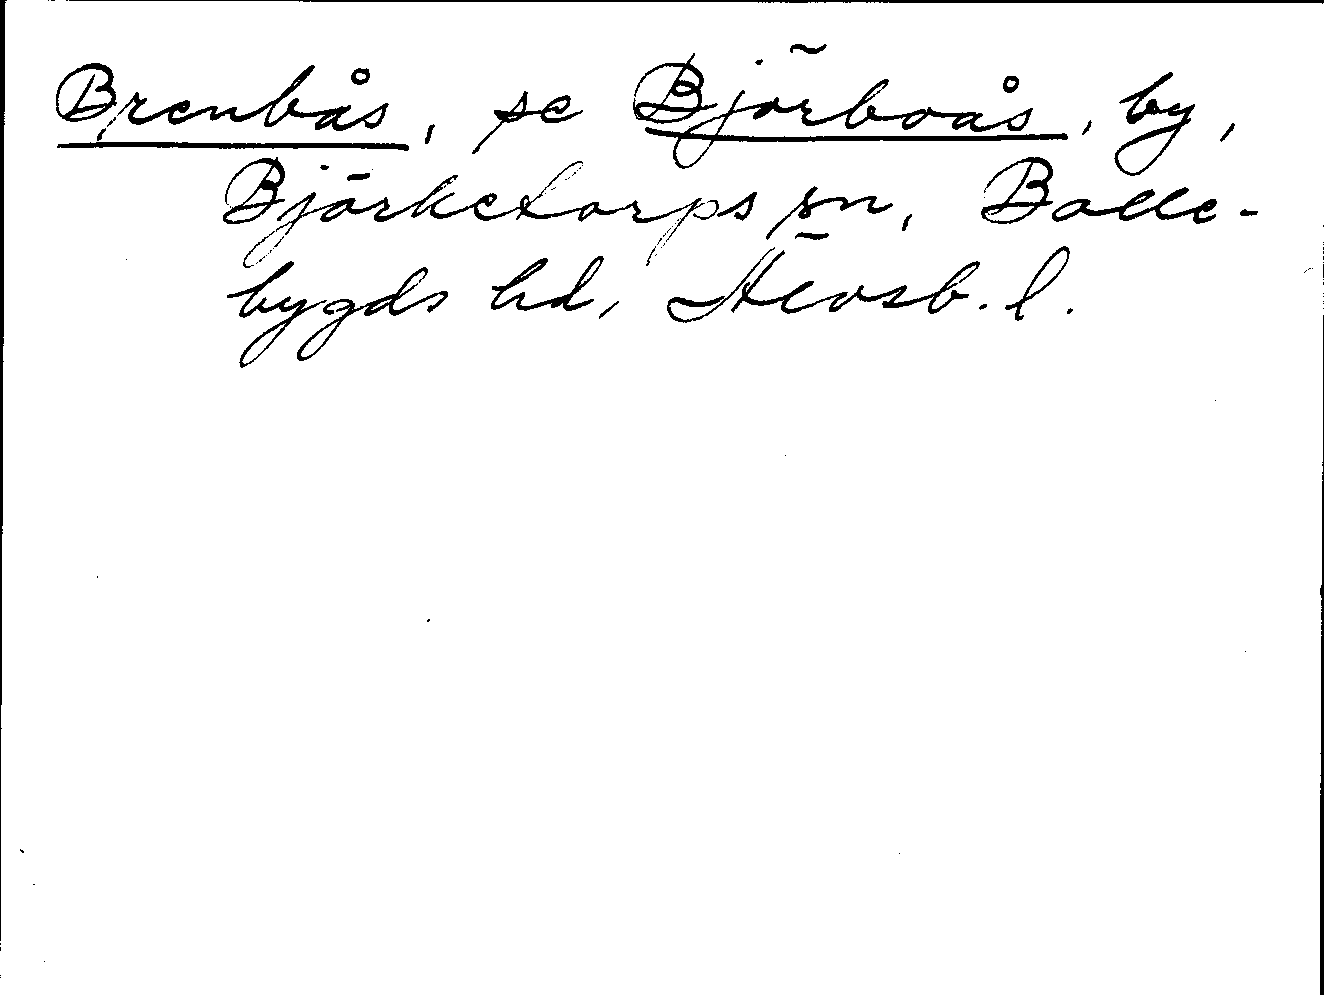 Brenbås, se Björboås, by,
Björketorps sn, Bolle-
bygds hd, Älvsb. l.